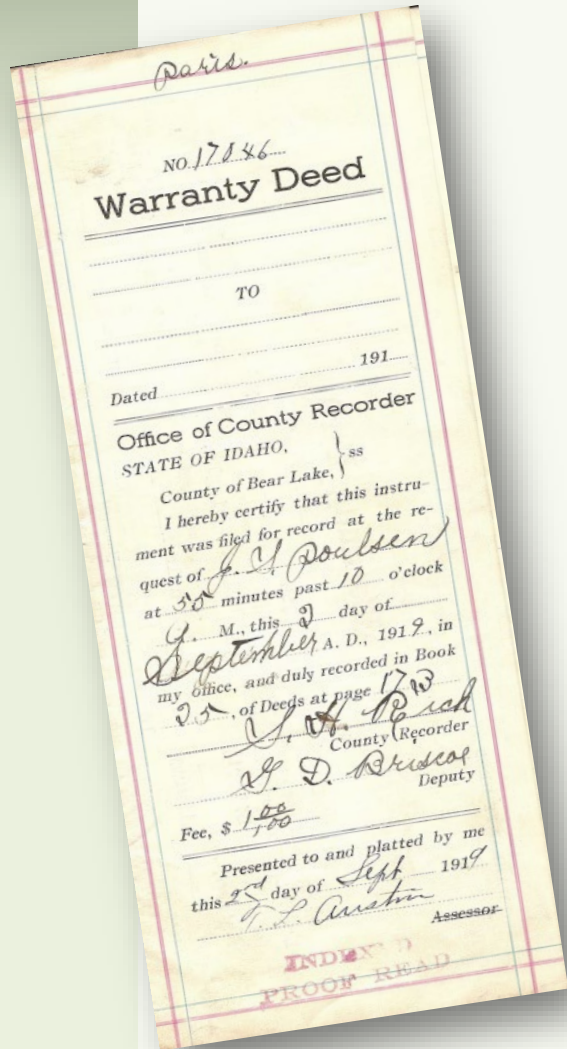 Paris.
NO. 17046
Warranty Deed
TO
Dated 191
Office of County Recorder
STATE OF IDAHO,
County of Bear Lake, } ss
I hereby certify that this instru-
ment was filed for record at the re-
quest of J. Y. Poulsen
at 55 minutes past 10 o'clock
M., this 2 day of
September A. D., 1919, in
my office, and duly recorded in Book
25, of Deeds at page 173
S. H. Rich
County Recorder
G. D. Briscoe
Deputy
Fee, $ 1 00/100
Presented to and platted by me
this 2nd day of Sept 1919
T. L. Austin
Assessor
INDEX D
PROOF READ